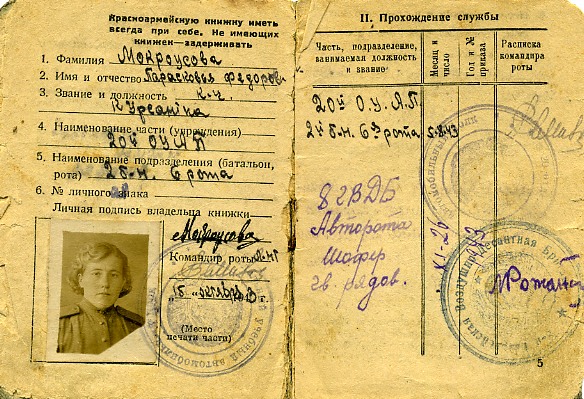 Красноармейскую книжку иметь
всегда при себе. Не имеющих
книжек—задерживать
1. Фамилия Мокроусова
2. Имя и отчество Парасковья Федоров
3. Звание и должность к-ч.
Курсантка
4. Наименование части (учреждения)
20й ОУАП
5. Наименование подразделения (батальон,
рота) 2 б-н. 6 рота
6. № личного знака
Личная подпись владельца книжки—
Мокроусова
Командир роты
"15" октября 3 г.
(Место
печати части)
II. Прохождение службы
Часть, подразделение,
занимаемая должность
и звание
Месяц и
число
Год и №
приказа
Расписка
командира
роты
20й О.У.А.П.
2й б-н. 6 рота 5-8.43
8 гВДБ
Авторота
Шофер
гв. рядов.
XI-26
43
5